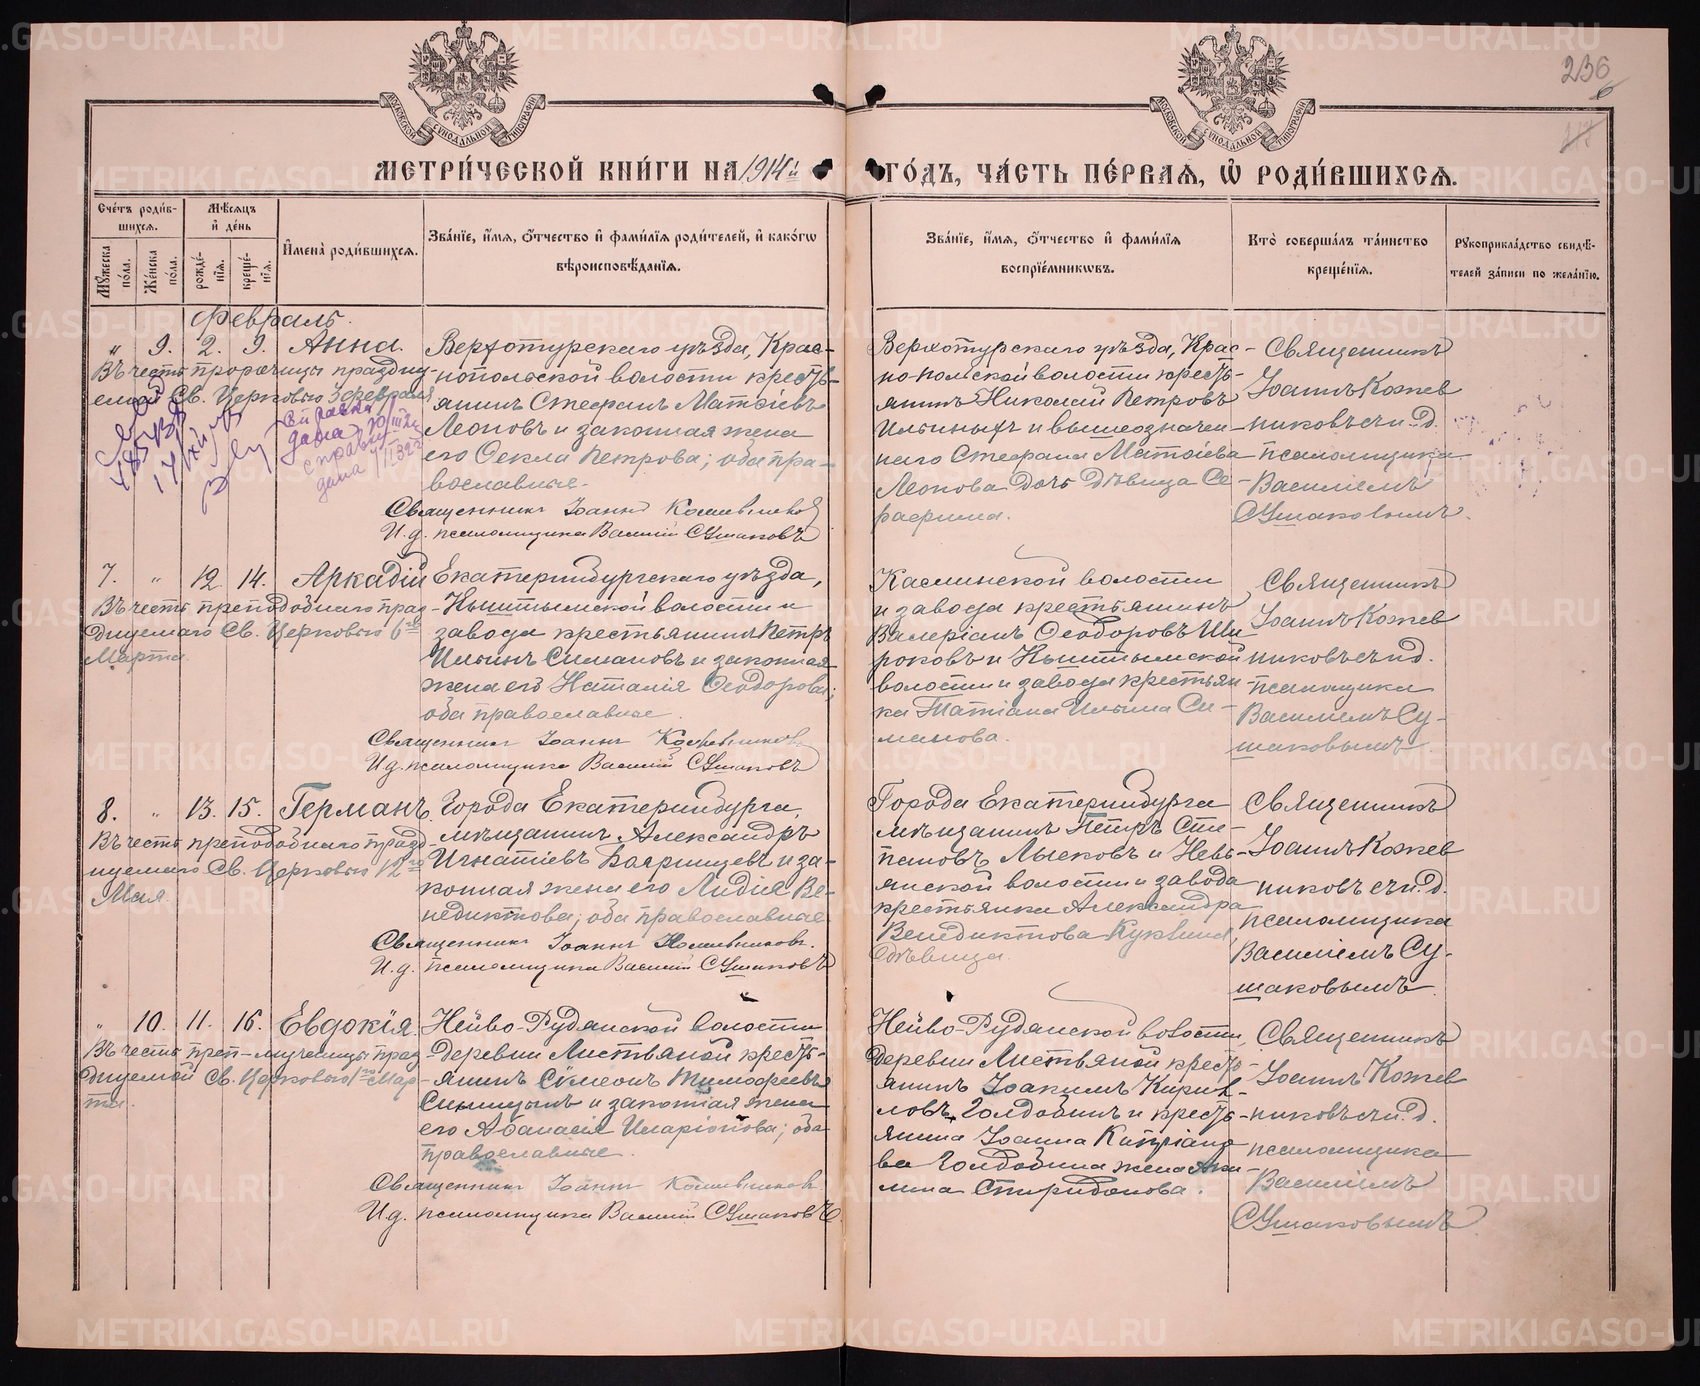 236
МЕТРИ́ЧЕСКОЙ КНИ́ГИ НА 1914й ГО́ДЪ, ЧА́СТЬ ПЕ́РВАЯ, Ѽ РОДИ́ВШИХСЯ.
Сче́тъ роди́вшихся.
Мѣ́сяцъ и҆ де́нь
Мꙋ́жеска по́ла.
Же́нска по́ла.
рожде́нїя.
креще́нїя.
И҆мена̀ роди́вшихся.
Зва́нїе, и҆́мя, ѻ҆́тчество и҆ фами́лїя роди́телей, и҆ како́гѡ
вѣроисповѣ́данїя.
Зва́нїе, и҆́мя, ѻ҆́тчество и҆ фами́лїя
воспрїе́мникѡвъ.
Кто̀ соверша́лъ та́инство
креще́нїя.
Рꙋкоприкла́дство свидѣ́-
телей за́писи по жела́нїю.
Февраль.
" 9. 2. 9. Анна.
Въ честь пророчицы праздну-
емой Св. Церковью 3 февраля
Верхотурскаго уѣзда, Крас-
нопольской волости кресть-
янинъ Стефанъ Матѳіевъ
Леоновъ и законная жена
его Ѳекла Петрова; оба пра-
вославные.
Священникъ Іоаннъ Кожевниковъ
И.д. псаломщика Василій Сушаковъ
Верхотурскаго уѣзда, Крас-
но-польской волости кресть-
янинъ Николай Петровъ
Ильиных и вышеозначен-
наго Стефана Матѳіева
Леонова дочь дѣвица Се-
рафима.
Священникъ
Іоаннъ Кожев
никовъ съ и.д.
псаломщика
Василіемъ
Сушаковымъ.
7. " 12. 14. Аркадій
Въ честь преподобнаго празд-
днуемаго Св. Церковью 6го
Марта.
Екатеринбургскаго уѣзда,
Кыштымской волости и
завода крестьянинъ Петръ
Ильинъ Симановъ и законная
жена его Наталія Ѳеодорова;
оба православные.
Священникъ Іоаннъ Кожевниковъ
И.д. псаломщика Василій Сушаковъ
Каслинской волости
и завода крестьянинъ
Валеріанъ Ѳеодоровъ Ши
роковъ и Кыштымской
волости и завода крестьян-
ка Татіана Ильина Си-
манова.
Священникъ
Іоаннъ Кожев
никовъ съ и.д.
псаломщика
Василіемъ Су-
шаковымъ.
8. " 13. 15. Германъ.
Въ честь преподобнаго празд-
нуемаго Св. Церковью 12го
Мая.
Города Екатеринбурга,
мѣщанинъ Александръ
Игнатіевъ Бояршцевъ и за-
конная жена его Лидія Ве-
недиктова; оба православные
Священникъ Іоаннъ Кожевниковъ.
И.д. псаломщика Василій Сушаковъ
Города Екатеринбурга
мѣщанинъ Петръ Сте-
пановъ Лысковъ и Невь-
янской волости и завода
крестьянка Александра
Венедиктова Куквина,
дѣвица.
Священникъ
Іоаннъ Кожев
никовъ съ и.д.
псаломщика
Василіемъ Су-
шаковымъ.
" 10. 11. 16. Евдокія.
Въ честь преп-мученицы праз
днуемой Св. Церковью 1го Мар-
та.
Нейво-Рудянской волости
деревни Листвяной кресть-
янинъ Сѷмеонъ Тимоѳеевъ
Синицынъ и законная жена
его Аѳанасія Иларіонова; оба
православные.
Священникъ Іоаннъ Кожевниковъ
И.д. псаломщика Василій Сушаковъ.
Нейво-Рудянской волости,
деревни Листвяной кресть-
янинъ Іоакимъ Кирил-
ловъ Голдобинъ и кресть-
янина Іоанна Кипріано
ва Голдобина жена Аки-
лина Спиридонова.
Священникъ
Іоаннъ Кожев
никовъ съ и.д.
псаломщика
Василіемъ
Сушаковымъ
METRIKI.GASO-URAL.RU